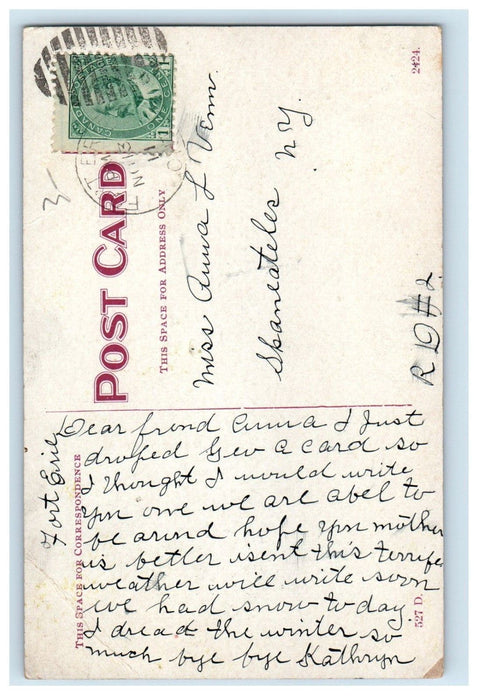 POST CARD
THIS SPACE FOR ADDRESS ONLY
Miss Anna L Venn
Skaneateles NY.
R D #2
2424.
3-
CANADA POSTAGE
ONE CENT
THIS SPACE FOR CORRESPONDENCE
527 D.
Fort Erie
Dear frend Anna I Just
droped Gev a card so
I thought I would write
you one we are abel to
be arund hope you mother
is better isent this terrife
weather will write soon
we had snow today
I dread the winter so
much bye bye Kathryn